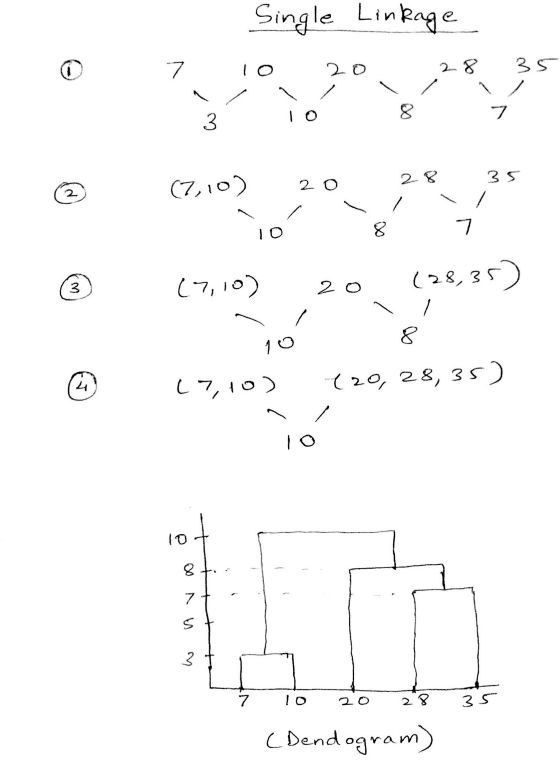 Single Linkage
① 7 10 20 28 35
3 10 8 7
② (7,10) 20 28 35
10 8 7
③ (7,10) 20 (28,35)
10 8
④ (7,10) (20, 28, 35)
10
10
8
7
5
3
7 10 20 28 35
(Dendogram)